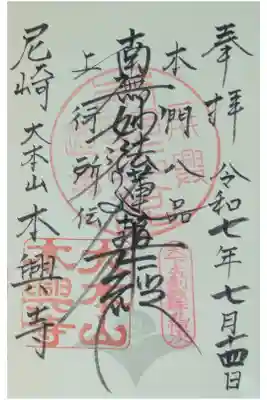 奉拝 令和七年七月十四日
本門八品
南無妙法蓮華經
上行所伝
尼崎 大本山 本興寺
大本山
本興寺